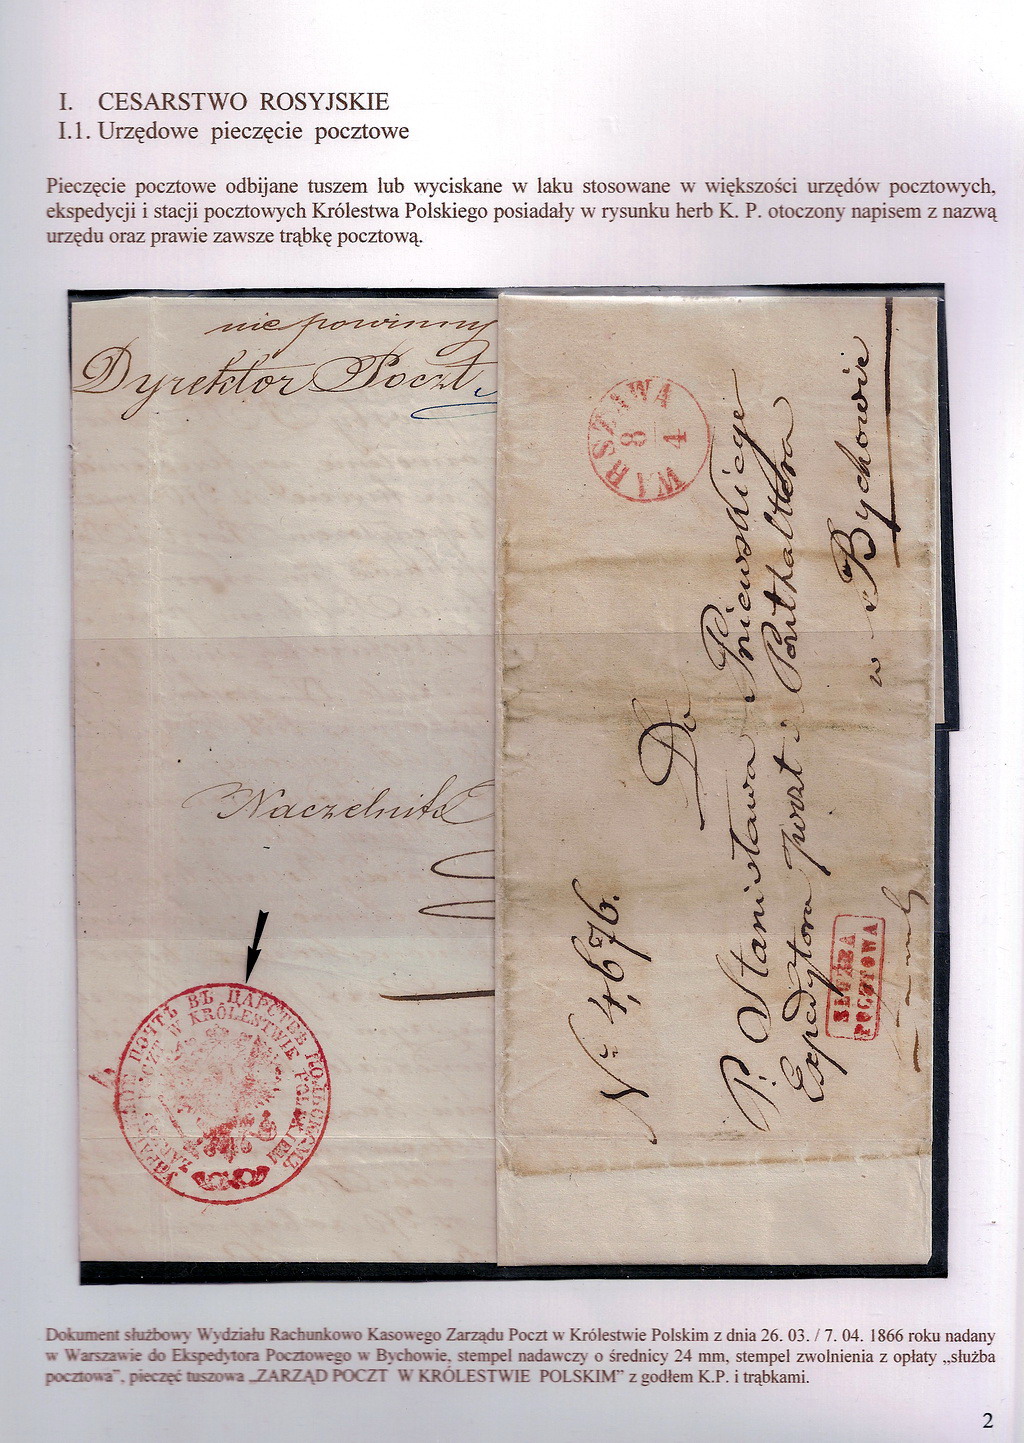 I. CESARSTWO ROSYJSKIE
I.1. Urzędowe pieczęcie pocztowe
Pieczęcie pocztowe odbijane tuszem lub wyciskane w laku stosowane w większości urzędów pocztowych,
ekspedycji i stacji pocztowych Królestwa Polskiego posiadały w rysunku herb K. P. otoczony napisem z nazwą
urzędu oraz prawie zawsze trąbkę pocztową.
nie powinny
Dyrektor Poczt
Naczelnik
УПРАВЛЕНІЕ ПОЧТЪ ВЪ ЦАРСТВѢ ПОЛЬСКОМЪ
ZARZĄD POCZT W KRÓLESTWIE POLSKIEM
WARSZAWA
8
4
Nº 4,676.
Do
P. Stanisława Pniewskiego
Expedytora poczt i Poczthaltera
w Bychowie
SŁUŻBA
POCZTOWA
Dokument służbowy Wydziału Rachunkowo Kasowego Zarządu Poczt w Królestwie Polskim z dnia 26. 03. / 7. 04. 1866 roku nadany
w Warszawie do Ekspedytora Pocztowego w Bychowie, stempel nadawczy o średnicy 24 mm, stempel zwolnienia z opłaty „służba
pocztowa”, pieczęć tuszowa „ZARZĄD POCZT W KRÓLESTWIE POLSKIM” z godłem K.P. i trąbkami.
2